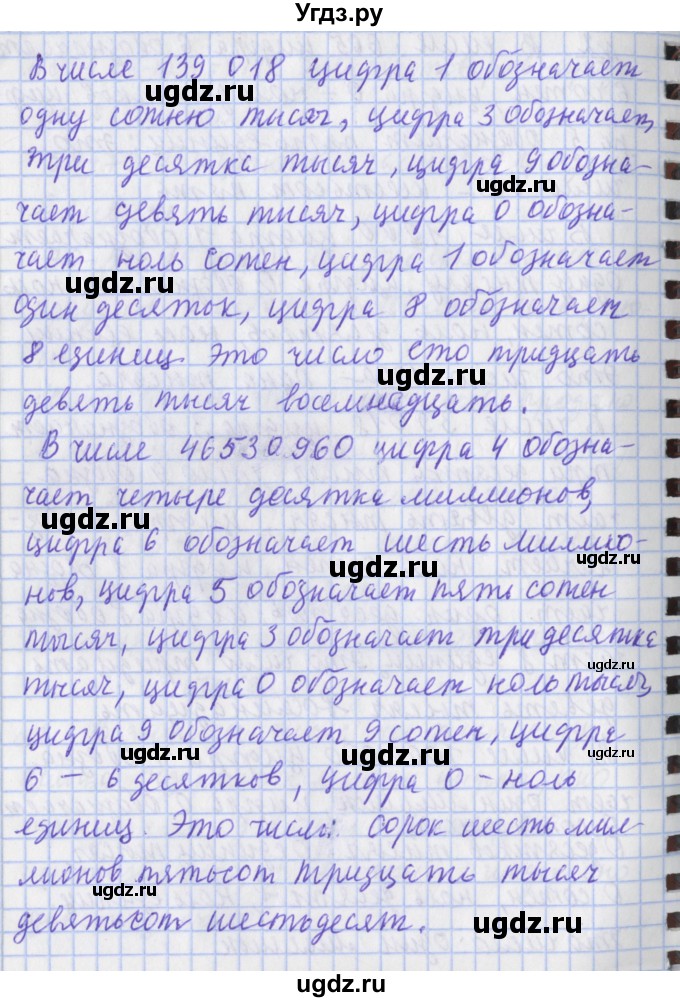 Угдз.ру
В числе 139 018 цифра 1 обозначает
ugdz.ru
одну сотню тысяч, цифра 3 обозначает,
ugdz.ru
три десятка тысяч, цифра 9 обозна-
ugdz.ru
чает девять тысяч, цифра 0 обозна-
чает ноль сотен, цифра 1 обозначает
ugdz.ru
один десяток, цифра 8 обозначает
8 единиц. Это число сто тридцать
ugdz.ru
девять тысяч восемнадцать.
В числе 46530960 цифра 4 обозна-
чает четыре десятка миллионов,
ugdz.ru
цифра 6 обозначает шесть миллио-
ugdz.ru
нов, цифра 5 обозначает пять сотен
тысяч, цифра 3 обозначает три десятка
ugdz.ru
тысяч, цифра 0 обозначает ноль тысяч,
цифра 9 обозначает 9 сотен, цифра
ugdz.ru
6 – 6 десятков, цифра 0 – ноль
единиц. Это число: сорок шесть мил-
лионов пятьсот тридцать тысяч
ugdz.ru
девятьсот шестьдесят.
ugdz.ru
ugdz.ru